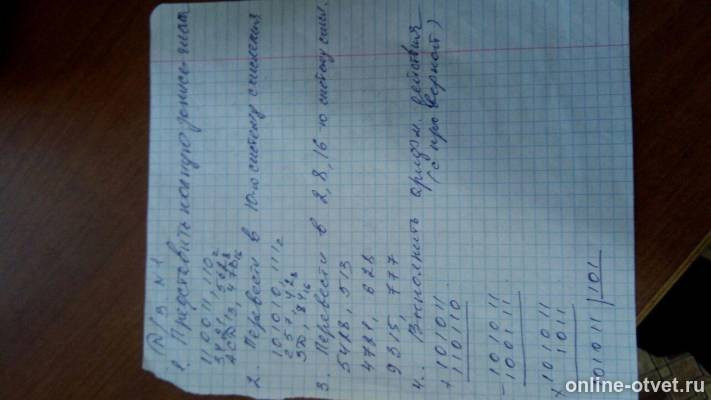 Д/з №1
1. Представить полную запись числа
110011,110₂
342,562₈
АСD13,47В₁₆
2. Перевести в 10-ю систему счисления
101010,111₂
257,42₈
3D,84₁₆
3. Перевести в 2, 8, 16-ю систему счисл.
5428,513
4721,628
9315,777
4. Выполнить арифм. действия
(с проверкой)
+ 101011
110110
- 101011
100111
× 101011
1011
101011 | 101
online-otvet.ru